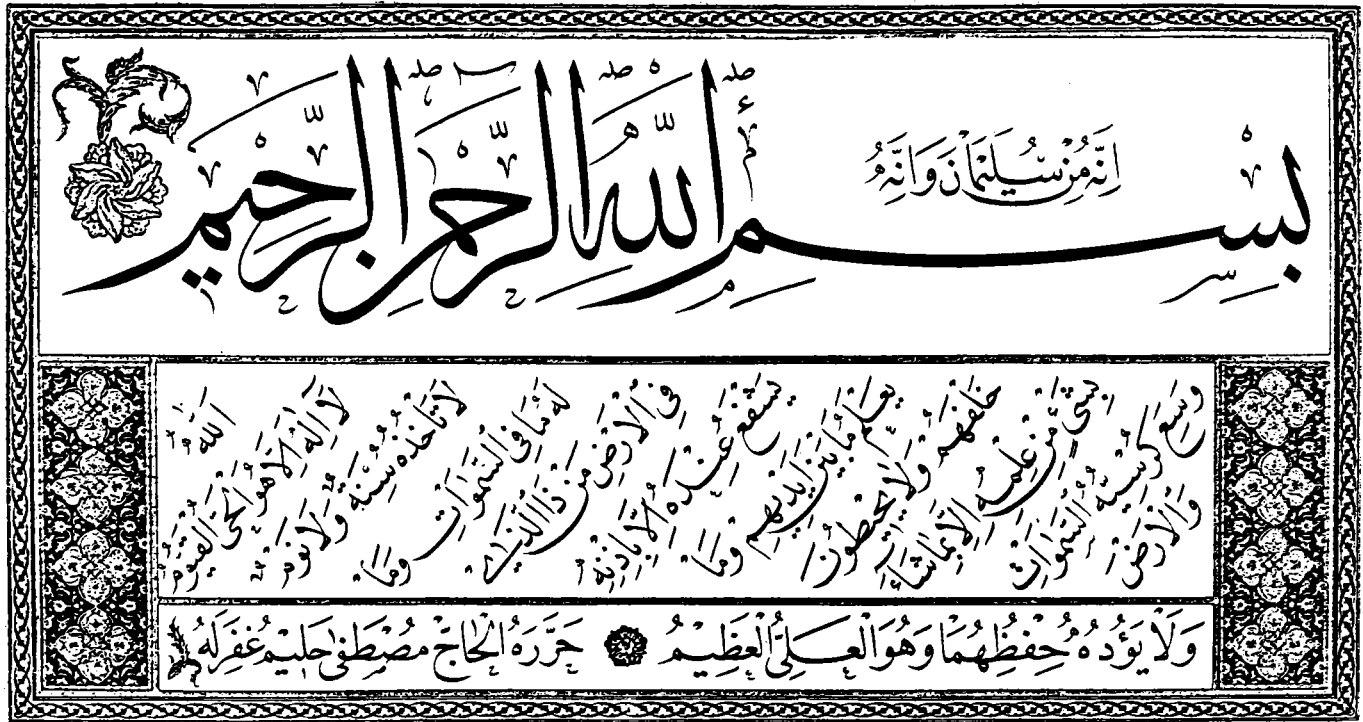 اِنَّهُ مِنْ سُلَيْمَانَ وَاِنَّهُ
بِسْمِ اللّٰهِ الرَّحْمٰنِ الرَّحِيمِ
اَللّٰهُ
لَا اِلٰهَ اِلَّا هُوَ الْحَىُّ الْقَيُّومُ
لَا تَأْخُذُهُ سِنَةٌ وَلَا نَوْمٌ
لَهُ مَا فِى السَّمٰوَاتِ وَمَا
فِى الْاَرْضِ مَنْ ذَا الَّذِى
يَشْفَعُ عِنْدَهُ اِلَّا بِاِذْنِهِ
يَعْلَمُ مَا بَيْنَ اَيْدِيهِمْ وَمَا
خَلْفَهُمْ وَلَا يُحِيطُونَ
بِشَىْءٍ مِنْ عِلْمِهِ اِلَّا بِمَا شَاءَ
وَسِعَ كُرْسِيُّهُ السَّمٰوَاتِ
وَالْاَرْضَ
وَلَا يَؤُدُهُ حِفْظُهُمَا وَهُوَ الْعَلِىُّ الْعَظِيمُ حَرَّرَهُ الْحَاجّ مُصْطَفٰى حَلِيمْ غُفِرَ لَهُ